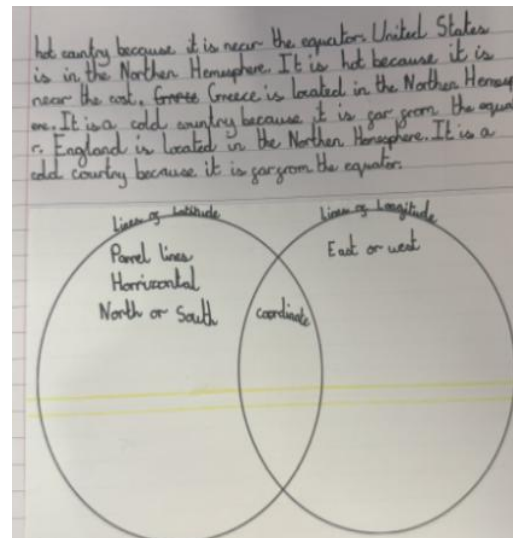 hot country because it is near the equator. United States
is in the Northen Hemusphere. It is hot because it is
near the cost. Greece is located in the Northen Hemusp
ere. It is a cold country because it is gar grom the equat
r. England is located in the Northen Hemosphere. It is a
cold country because it is gar grom the equator.
Lines of Latitude
Lines of Longitude
Parrel lines
Horrizontal
North or South
East or west
coordinate